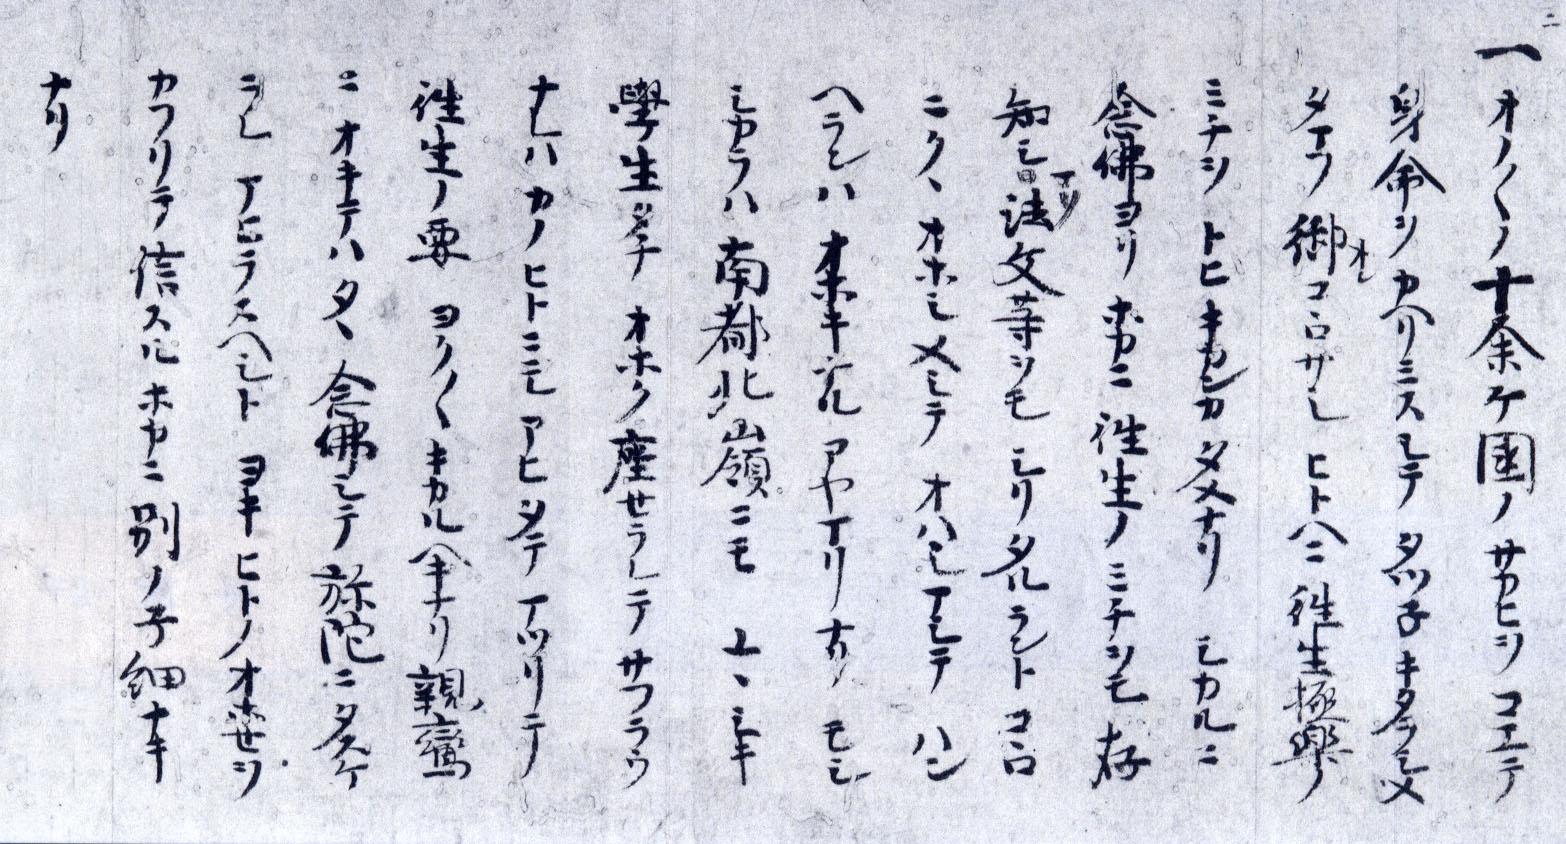 二
一 オノ〱ノ十余ケ国ノサカヒヲコエテ
身命ヲカヘリミスシテタツネキタラシメ
タマフ御コヽロサシヒトヘニ往生極樂ノ
ミチヲトヒキカンカタメナリシカルニ
念佛ヨリホカニ往生ノミチヲモ存
知シマタ法文等ヲモシリタルラントコヽロ
ニクヽオホシメシテオハシマシテハン
ヘランハオホキナルアヤマリナリモシ
シカラハ南都北嶺ニモユヽシキ
學生タチオホク座セラレテサフラウ
ナレハカノヒトニモアヒタテマツリテ
往生ノ要ヨク〱キカルヘキナリ親鸞
ニオキテハタヽ念佛シテ弥陀ニタスケ
ラレマヒラスヘシトヨキヒトノオホセヲ
カフリテ信スルホカニ別ノ子細ナキ
ナリ